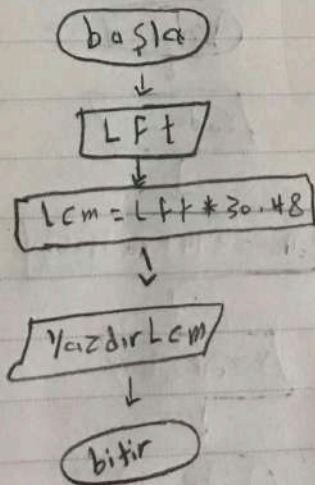 başla
L F t
L c m = L f t * 30.48
Yazdır L c m
bitir